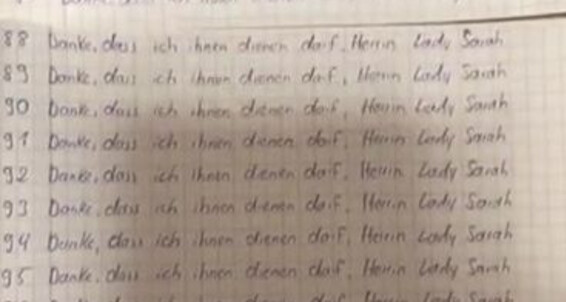 88 Danke, dass ich ihnen dienen darf, Herrin Lady Sarah
89 Danke, dass ich ihnen dienen darf, Herrin Lady Sarah
90 Danke, dass ich ihnen dienen darf, Herrin Lady Sarah
91 Danke, dass ich ihnen dienen darf, Herrin Lady Sarah
92 Danke, dass ich ihnen dienen darf, Herrin Lady Sarah
93 Danke, dass ich ihnen dienen darf, Herrin Lady Sarah
94 Danke, dass ich ihnen dienen darf, Herrin Lady Sarah
95 Danke, dass ich ihnen dienen darf, Herrin Lady Sarah